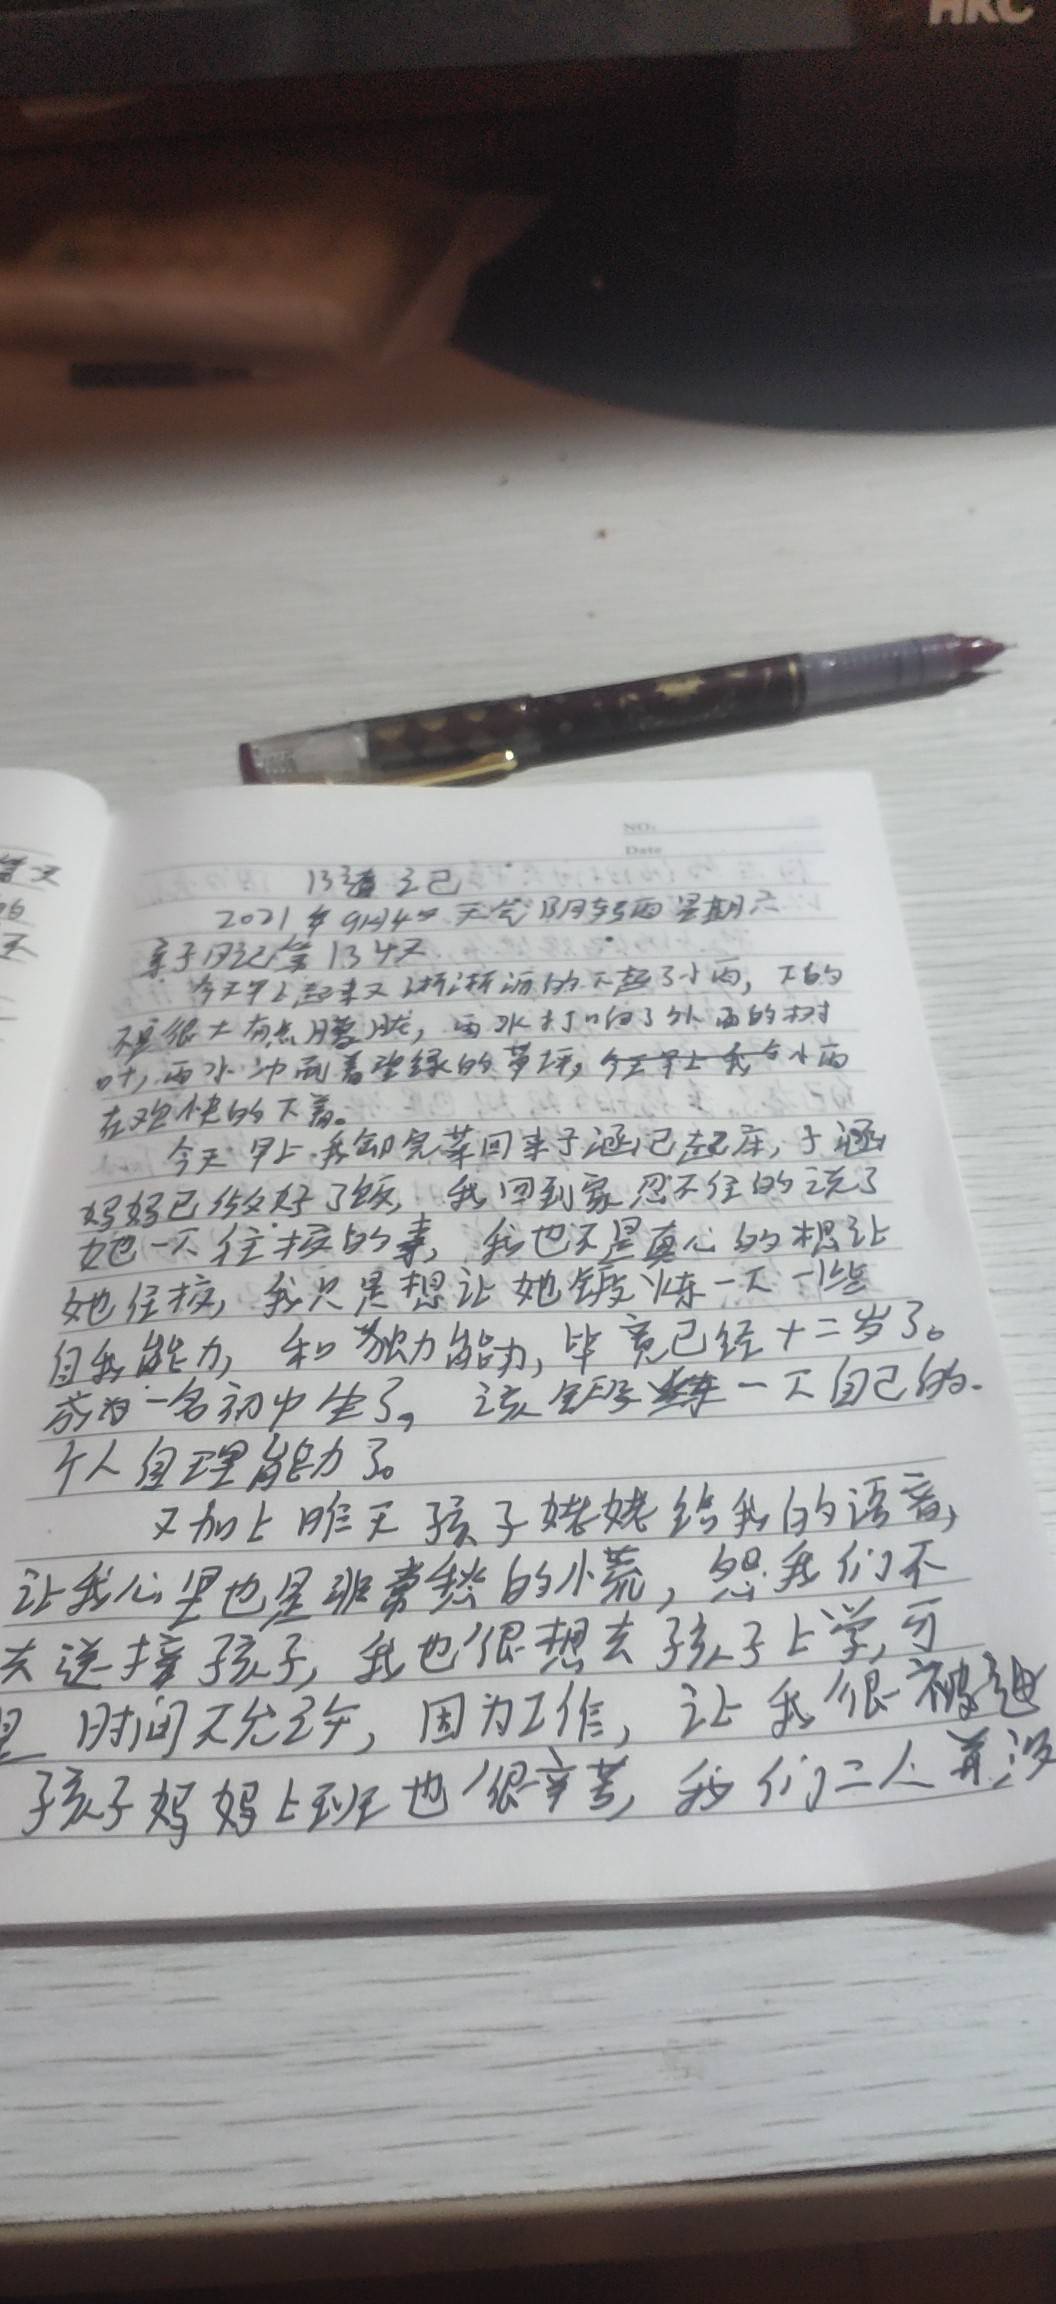 HKC
NO:
Date
2021年9月4日 天气阴转雨 星期六
亲子日记第134天
今天早上起来又淅淅沥的下起了小雨，下的
不是很大有点朦胧，雨水打响了外面的树
叶，雨水冲刷着碧绿的草坪，今天早上我令小雨
在欢快的下着。
今天早上我卸完菜回来子涵已起床，子涵
妈妈已做好了饭，我回到家忍不住的说了
她一下住校的事，我也不是真心的想让
她住校，我只是想让她锻炼一下一些
自我能力，和独力能力，毕竟已经十二岁了。
成为一名初中生了。该锻练一下自己的
个人自理能力了。
又加上昨天孩子姥姥给我的语音，
让我心里也是非常愁的心慌，怨我们不
去送接孩子，我也很想去孩子上学，可
是 时间不允许，因为工作，让我很被迫
孩子妈妈上班也很辛苦，我们二人并没